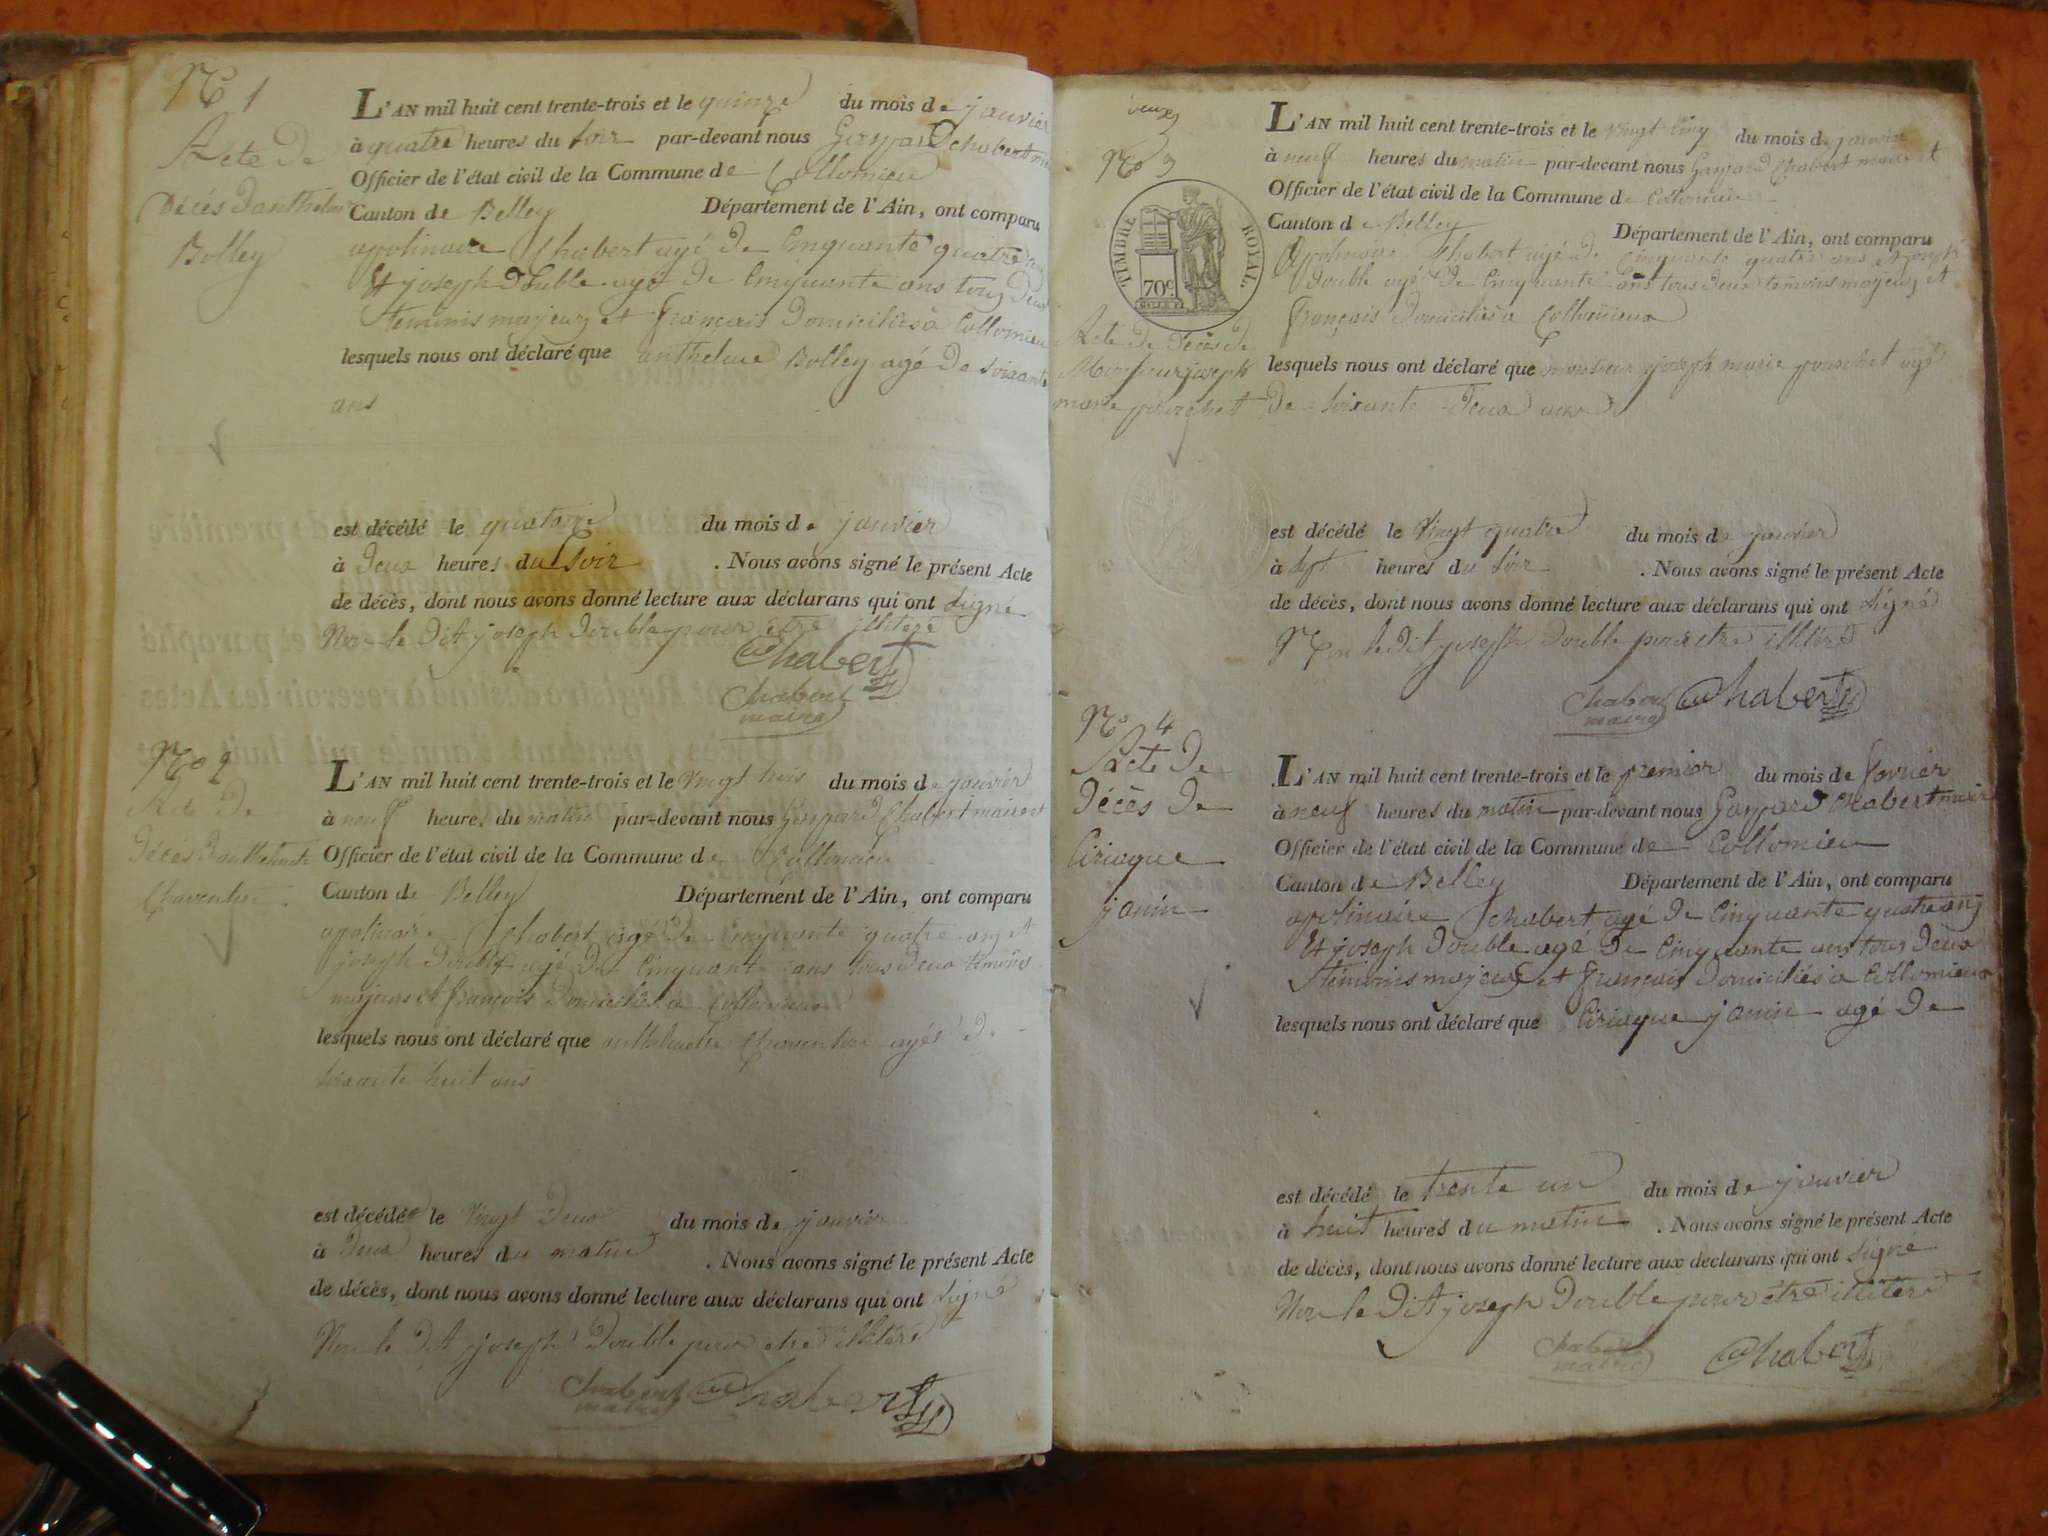 No 1
Acte de
Décès danthelme
Bolley
L'AN mil huit cent trente-trois et le quinze du mois de janvier
à quatre heures du soir par-devant nous Gaspard Chabert
Officier de l'état civil de la Commune de Collomieu
Canton de Belley Département de l'Ain, ont comparu
apolinaire Chabert agé de Cinquante quatre ans
Et joseph Double agé de Cinquante ans tous Deux
temoins majeurs et français Domiciliés à Collomieu
lesquels nous ont déclaré que anthelme Bolley agé de soixante
ans
est décédé le quatorze du mois de janvier
à Deux heures du soir . Nous avons signé le présent Acte
de décès, dont nous avons donné lecture aux déclarans qui ont signé
Non le Dit joseph Double pour être illiteré
Chabert
Chabert
maire
No 2
Acte de
Décès
L'AN mil huit cent trente-trois et le vingt trois du mois de janvier
à neuf heures du matin par-devant nous Gaspard Chabert maire et
Officier de l'état civil de la Commune de Collomieu
Canton de Belley Département de l'Ain, ont comparu
apolinaire Chabert agé de Cinquante quatre ans et
joseph Double agé de Cinquante ans tous deux temoins
majeurs et françois Domiciliés à Collomieu
lesquels nous ont déclaré que agé de
soixante huit ans
est décédé le vingt Deux du mois de janvier
à Deux heures du matin . Nous avons signé le présent Acte
de décès, dont nous avons donné lecture aux déclarans qui ont signé
Non le dit joseph Double pour etre illiteré
Chabert Chabert
maire
No 3
TIMBRE ROYAL
70c.
Acte de Décès de
Monsieur joseph
marie pourchet
L'AN mil huit cent trente-trois et le vingt cinq du mois de janvier
à neuf heures du matin par-devant nous Gaspard Chabert maire et
Officier de l'état civil de la Commune de Collomieu
Canton de Belley Département de l'Ain, ont comparu
Apolinaire Chabert agé de Cinquante quatre ans et joseph
Double agé de Cinquante ans tous deux temoins majeurs et
français Domiciliés à Collomieux
lesquels nous ont déclaré que monsieur joseph marie pourchet agé
de soixante Deux ans
est décédé le vingt quatre du mois de janvier
à sept heures du soir . Nous avons signé le présent Acte
de décès, dont nous avons donné lecture aux déclarans qui ont signé
Non le dit joseph Double pour etre illiteré
Chabert Chabert
maire
No 4
Acte de
Décès de
Ciriaque
janin
L'AN mil huit cent trente-trois et le premier du mois de fevrier
à neuf heures du matin par-devant nous Gaspard Chabert maire
Officier de l'état civil de la Commune de Collomieu
Canton de Belley Département de l'Ain, ont comparu
apolinaire Chabert agé de Cinquante quatre ans
Et joseph Double agé de Cinquante ans tous deux
témoins majeurs et français Domiciliés à Collomieux
lesquels nous ont déclaré que Ciriaque janin agé de
est décédé le trente un du mois de janvier
à huit heures du matin . Nous avons signé le présent Acte
de décès, dont nous avons donné lecture aux declarans qui ont signé
Non le Dit joseph Double pour être illiteré
Chabert Chabert
maire